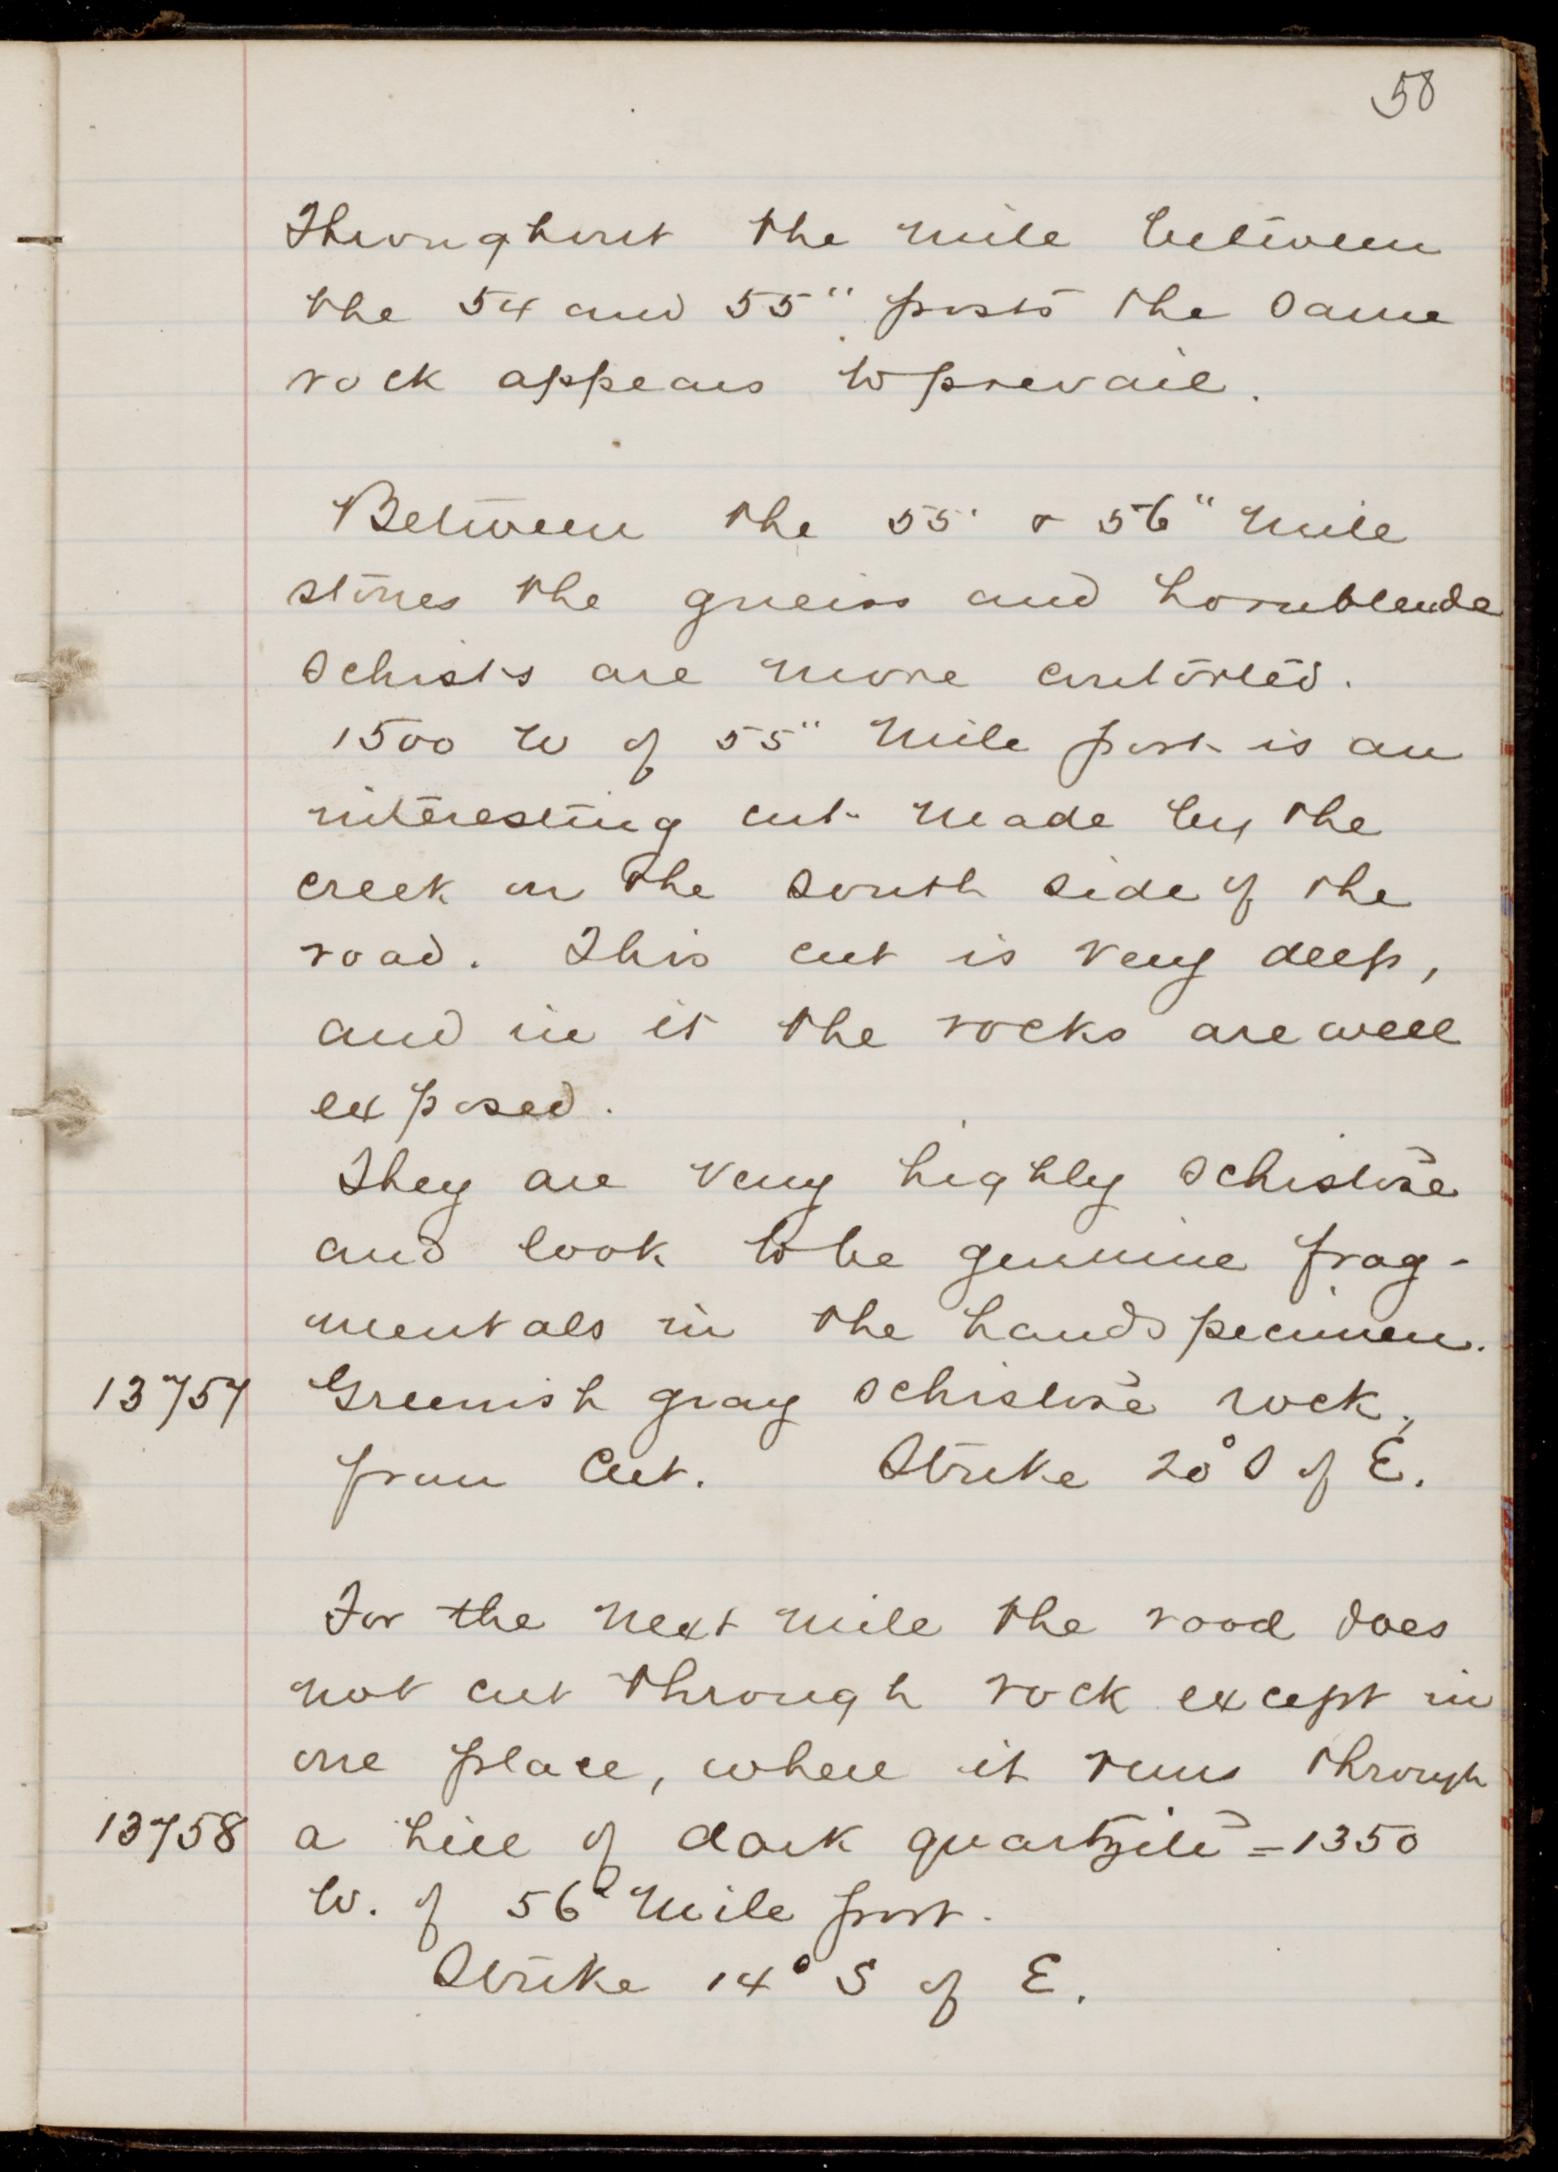 58
Throughout the mile between
the 54 and 55" posts the same
rock appears to prevail.
Between the 55' & 56" mile
stones the gneiss and hornblende
schists are more contorted.
1500 W of 55" mile post is an
interesting cut made by the
creek on the south side of the
road. This cut is very deep,
and in it the rocks are well
exposed.
They are very highly schistose
and look to be genuine frag-
mentals in the hand specimen.
13757 Greenish gray schistose rock,
from cut. Strike 20° S of E.
For the next mile the road does
not cut through rock except in
one place, where it runs through
13758 a hill of dark quartzite = 1350
W. of 56" mile post.
Strike 14° S of E.